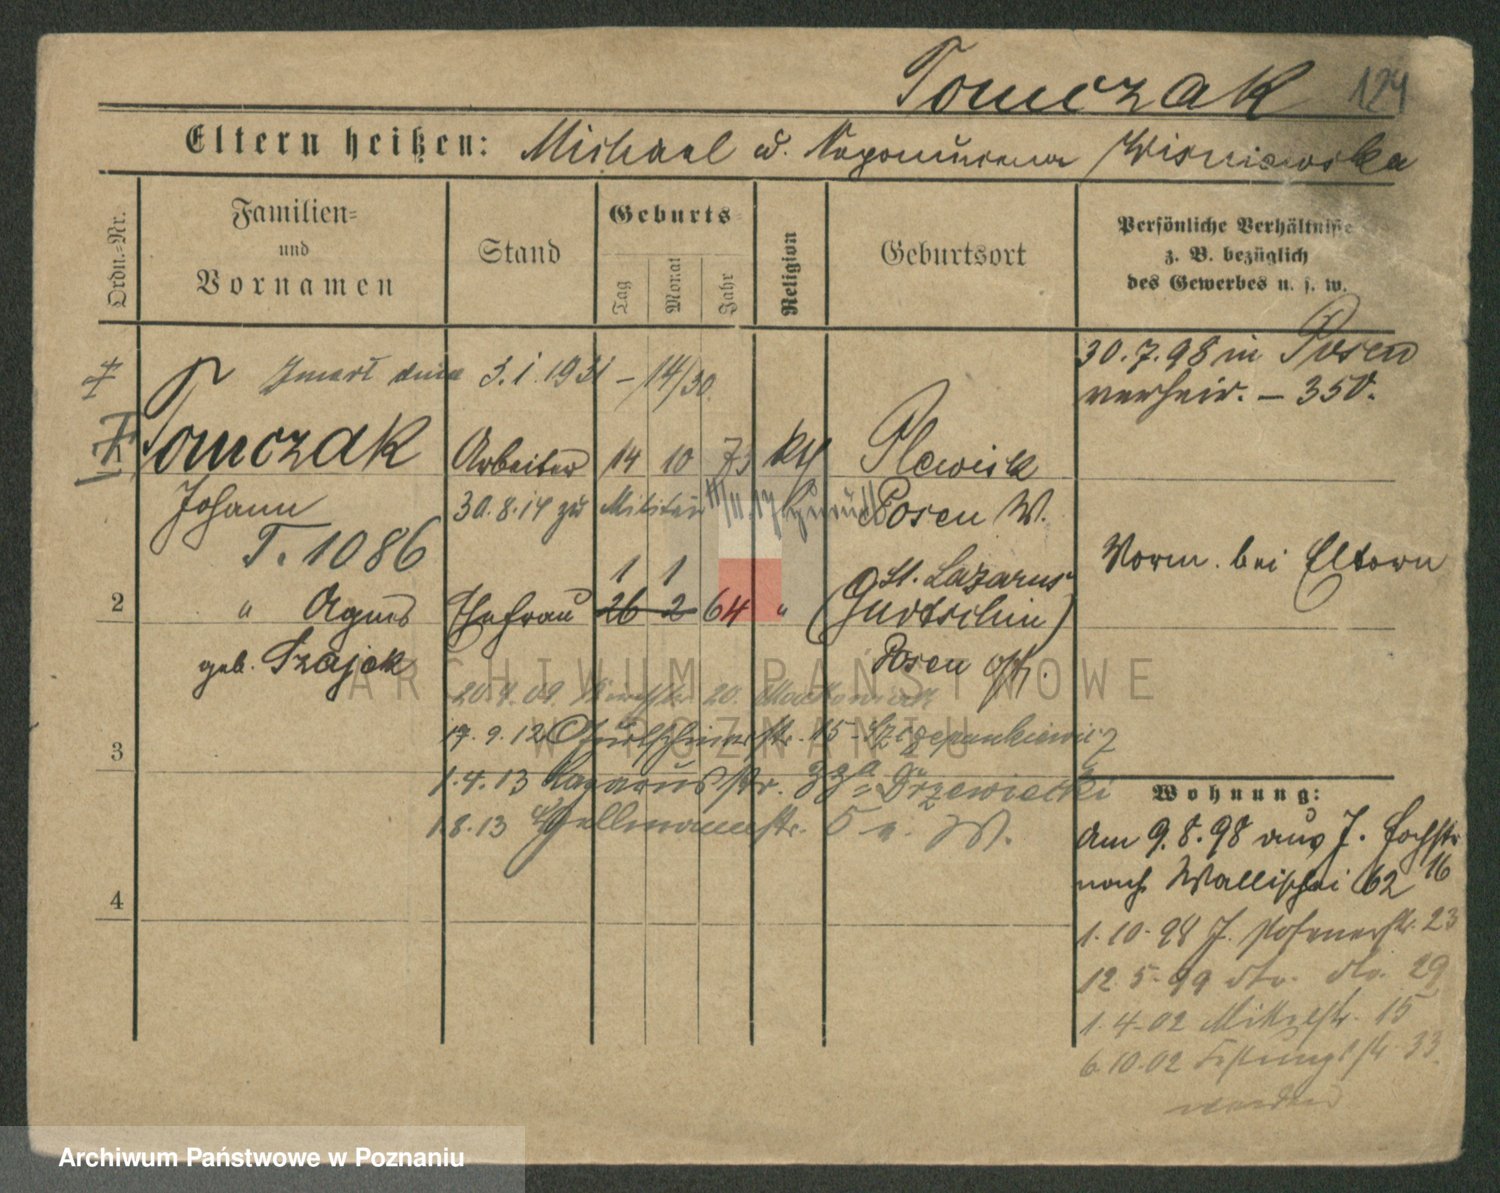 Tomczak 124
Eltern heißen: Michael u. Nepomucena Wisniewska
Ordn.=Nr.
Familien=
und
Vornamen
Stand
Geburts
Tag
Monat
Jahr
Religion
Geburtsort
Persönliche Verhältnisse
z. B. bezüglich
des Gewerbes u. s. w.
Zmarł dnia 3.1.1931 – 14/30
30.7.98 in Posen
verheir. – 350.
Tomczak Arbeiter 14 10 73 kth Plewisk
Johann 30.8.14 zu Militär zurück Posen W.
T. 1086
Vorm. bei Eltern
1 1 St. Lazarus
2 " Agnes Ehefrau 26 2 64 " (Gurtschin)
geb. Szajek Posen Ost.
20.4.09 20.
17.9.12 Gurtschinerstr. 15 - Szczepankiewicz
3
1.4.13 Lazarusstr. Drzewiecki
1.8.13 5 W.
Wohnung:
Am 9.8.98 aus J.
nach Wallischei 62 16
4
1.10.98 J. Posenerstr. 23
12.5.99 dto. dto. 29
1.4.02 15
6.10.02 Festungsstr. 33
ARCHIWUM PAŃSTWOWE
W POZNANIU
Archiwum Państwowe w Poznaniu